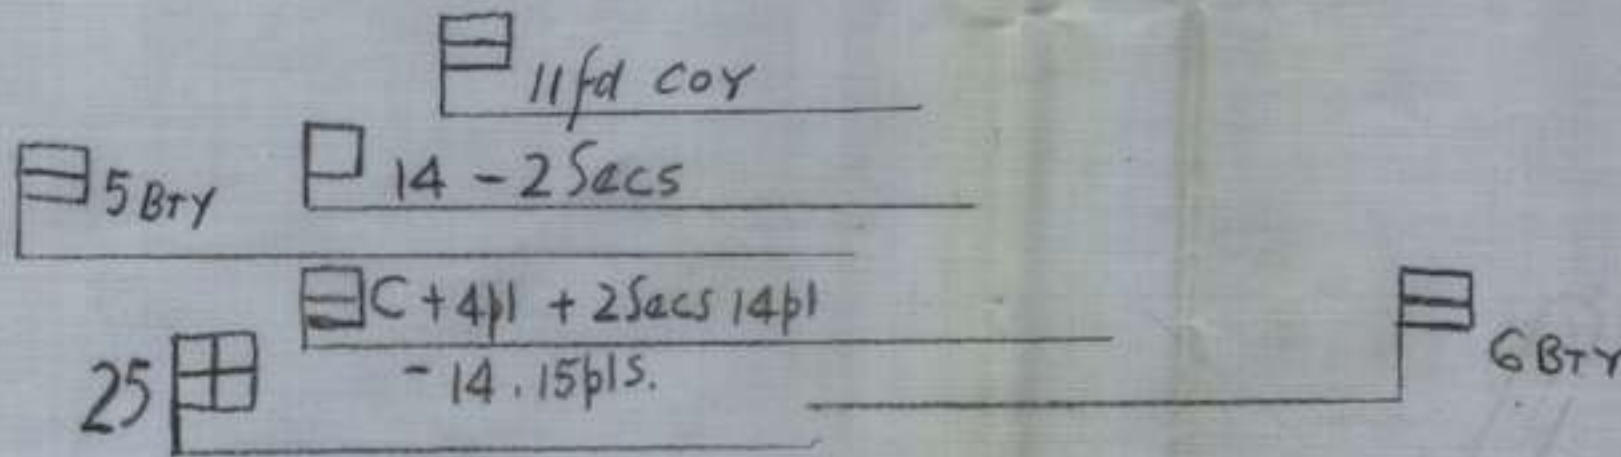 11 fd COY
5 BTY
14 - 2 Secs
C + 4pl + 2 Secs 14pl
- 14 . 15 pls.
25
6 BTY